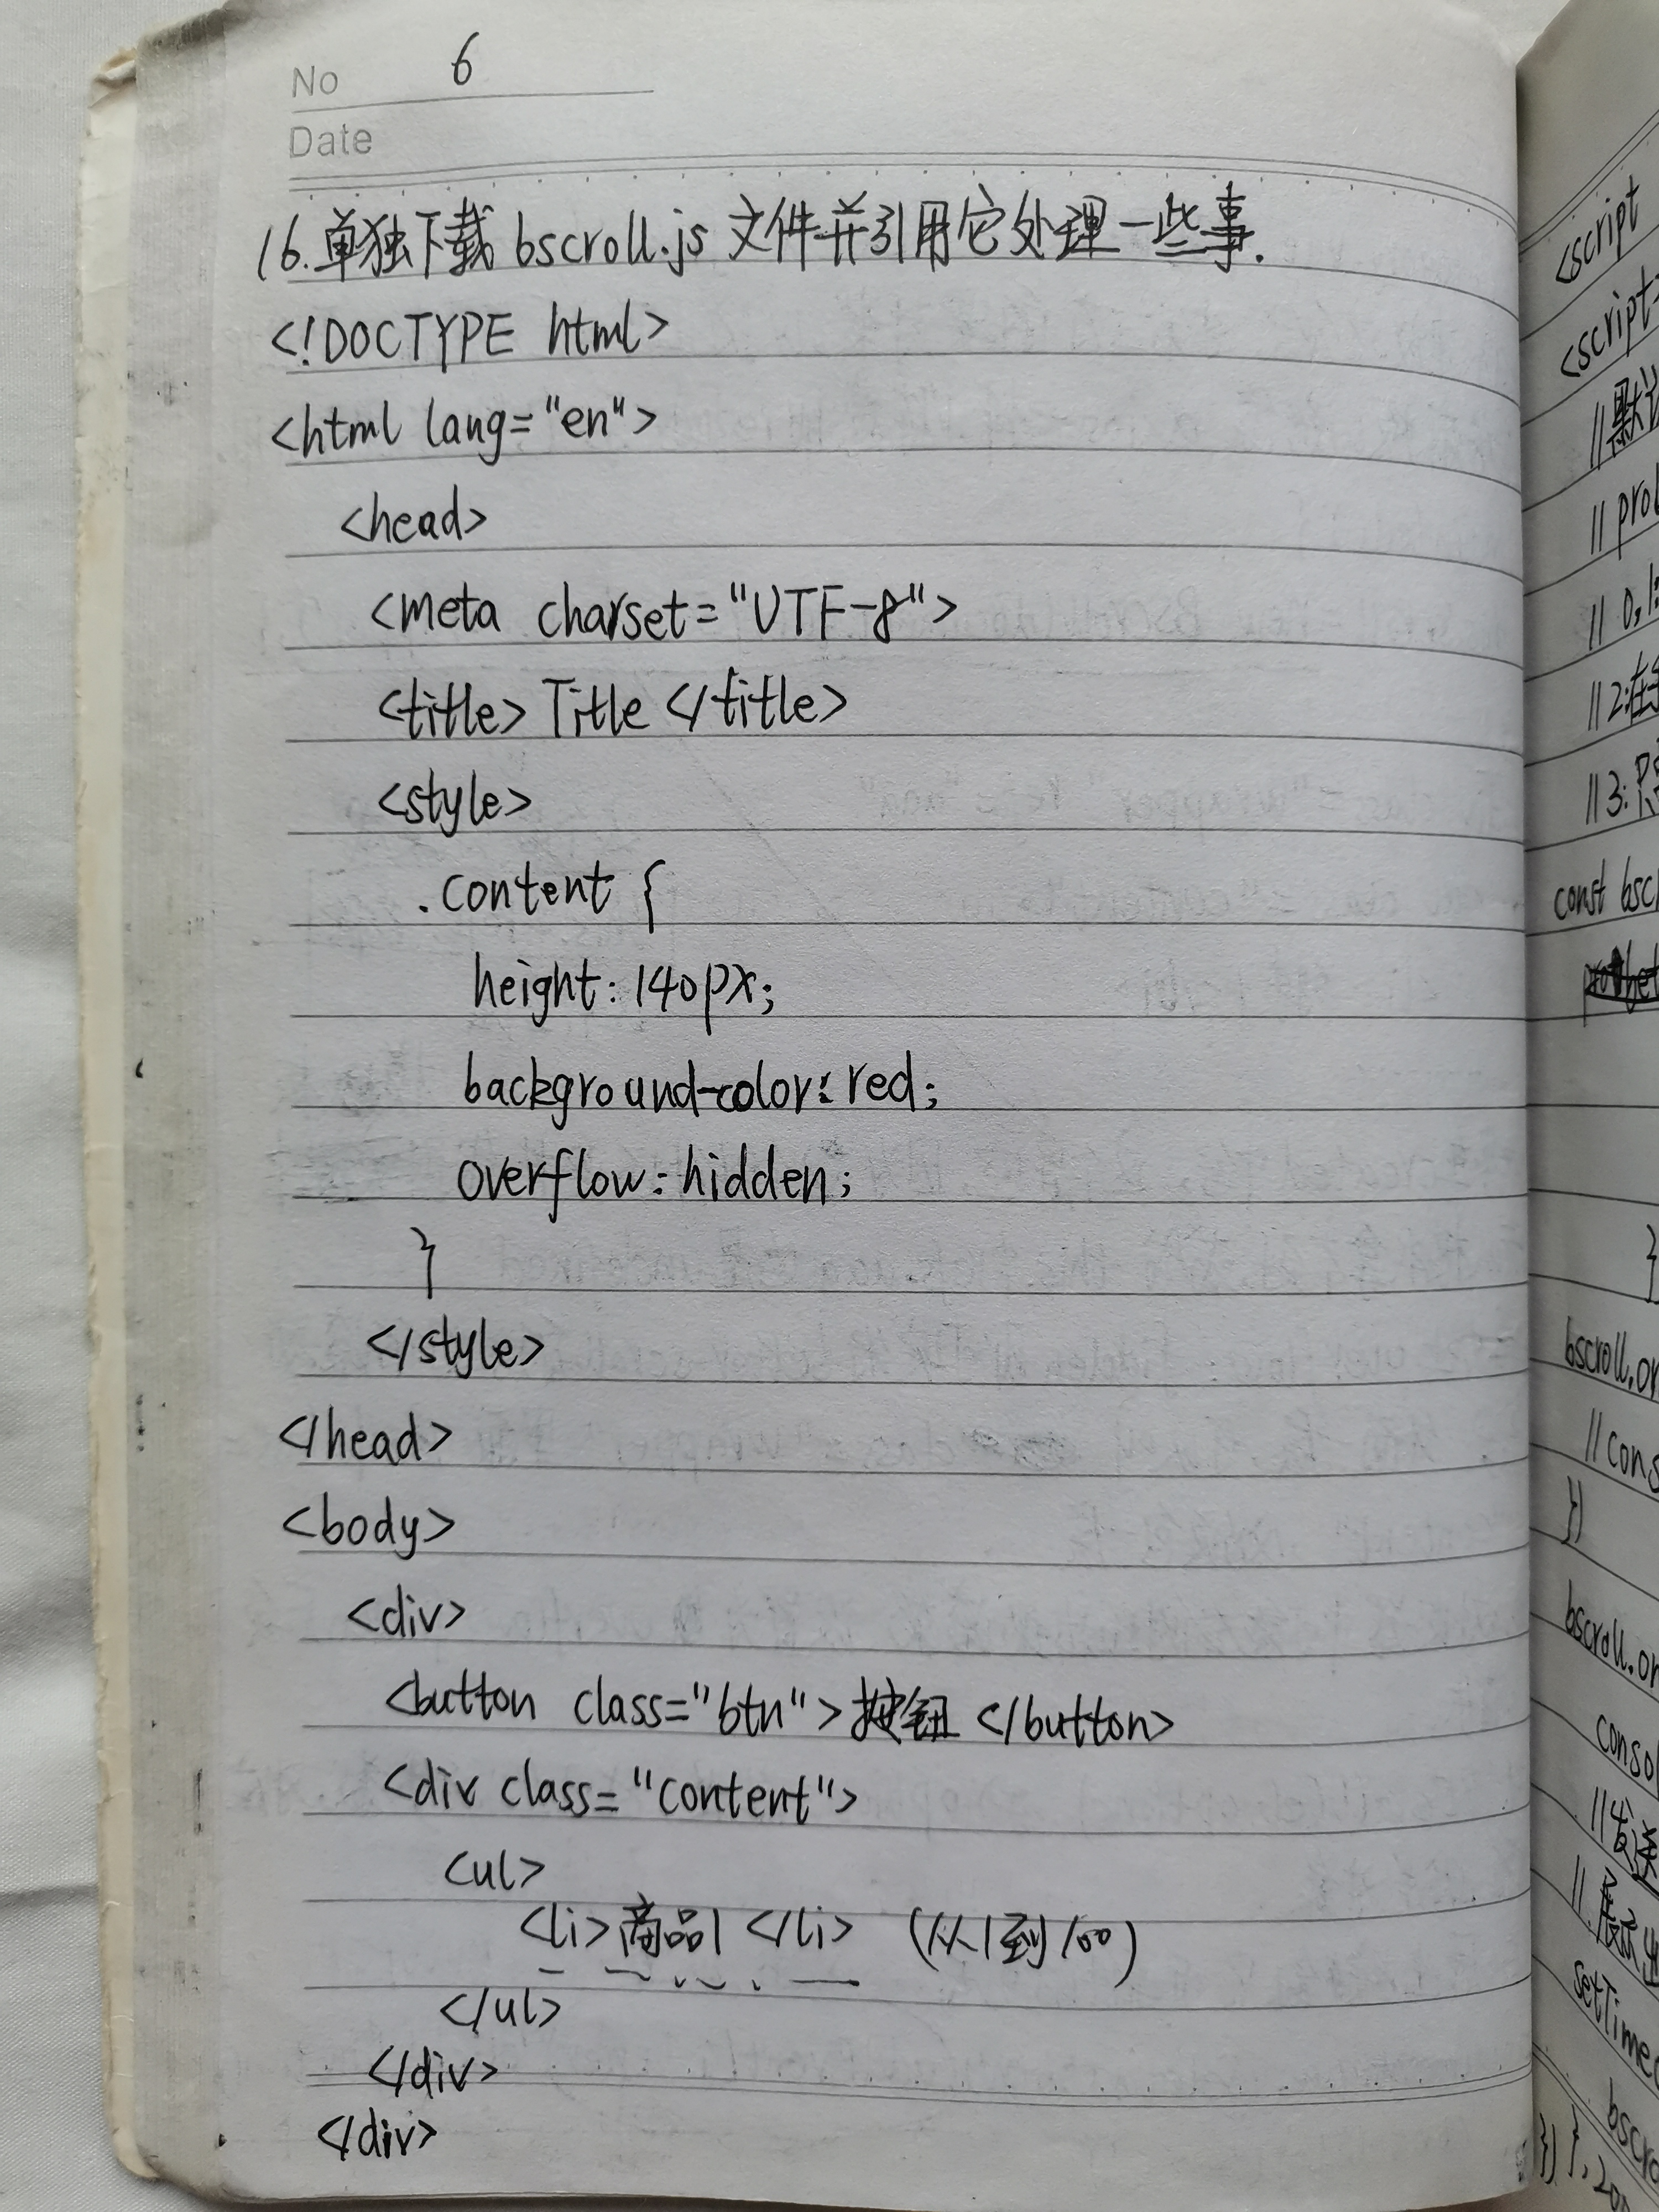 No 6
Date
16.单独下载 bscroll.js 文件并引用它处理一些事.
<!DOCTYPE html>
<html lang="en">
<head>
<meta charset="UTF-8">
<title> Title </title>
<style>
.content {
height: 140px;
background-color: red;
overflow: hidden;
}
</style>
</head>
<body>
<div>
<button class="btn">按钮 </button>
<div class="content">
<ul>
<li>商品1 </li> (从1到100)
</ul>
</div>
</div>
<script
<script
//默认
//
// 0,1:
// 2:在
// 3:只
const
}
bscroll.on
//
})
bscroll.on
//发送
//展示出